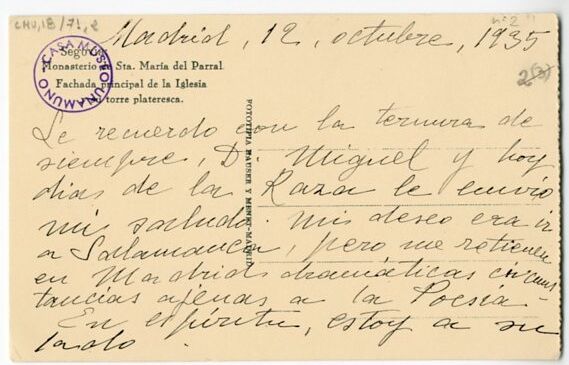 CMU, 18/71, 2
nº 2
Madrid, 12, octubre, 1935
2(3)
Segovia
Monasterio de Sta. María del Parral.
Fachada principal de la Iglesia
y torre plateresca.
CASA MUSEO UNAMUNO
FOTOTIPIA HAUSER Y MENET.-MADRID
Le recuerdo con la ternura de
siempre, D. Miguel y hoy
dias de la Raza le envio
mi saludo. Mis deseo era ir
a Salamanca, pero me retienen
en Madrid dramáticas circuns
tancias ajenas a la Poesía.
En espíritu, estoy a su
lado.